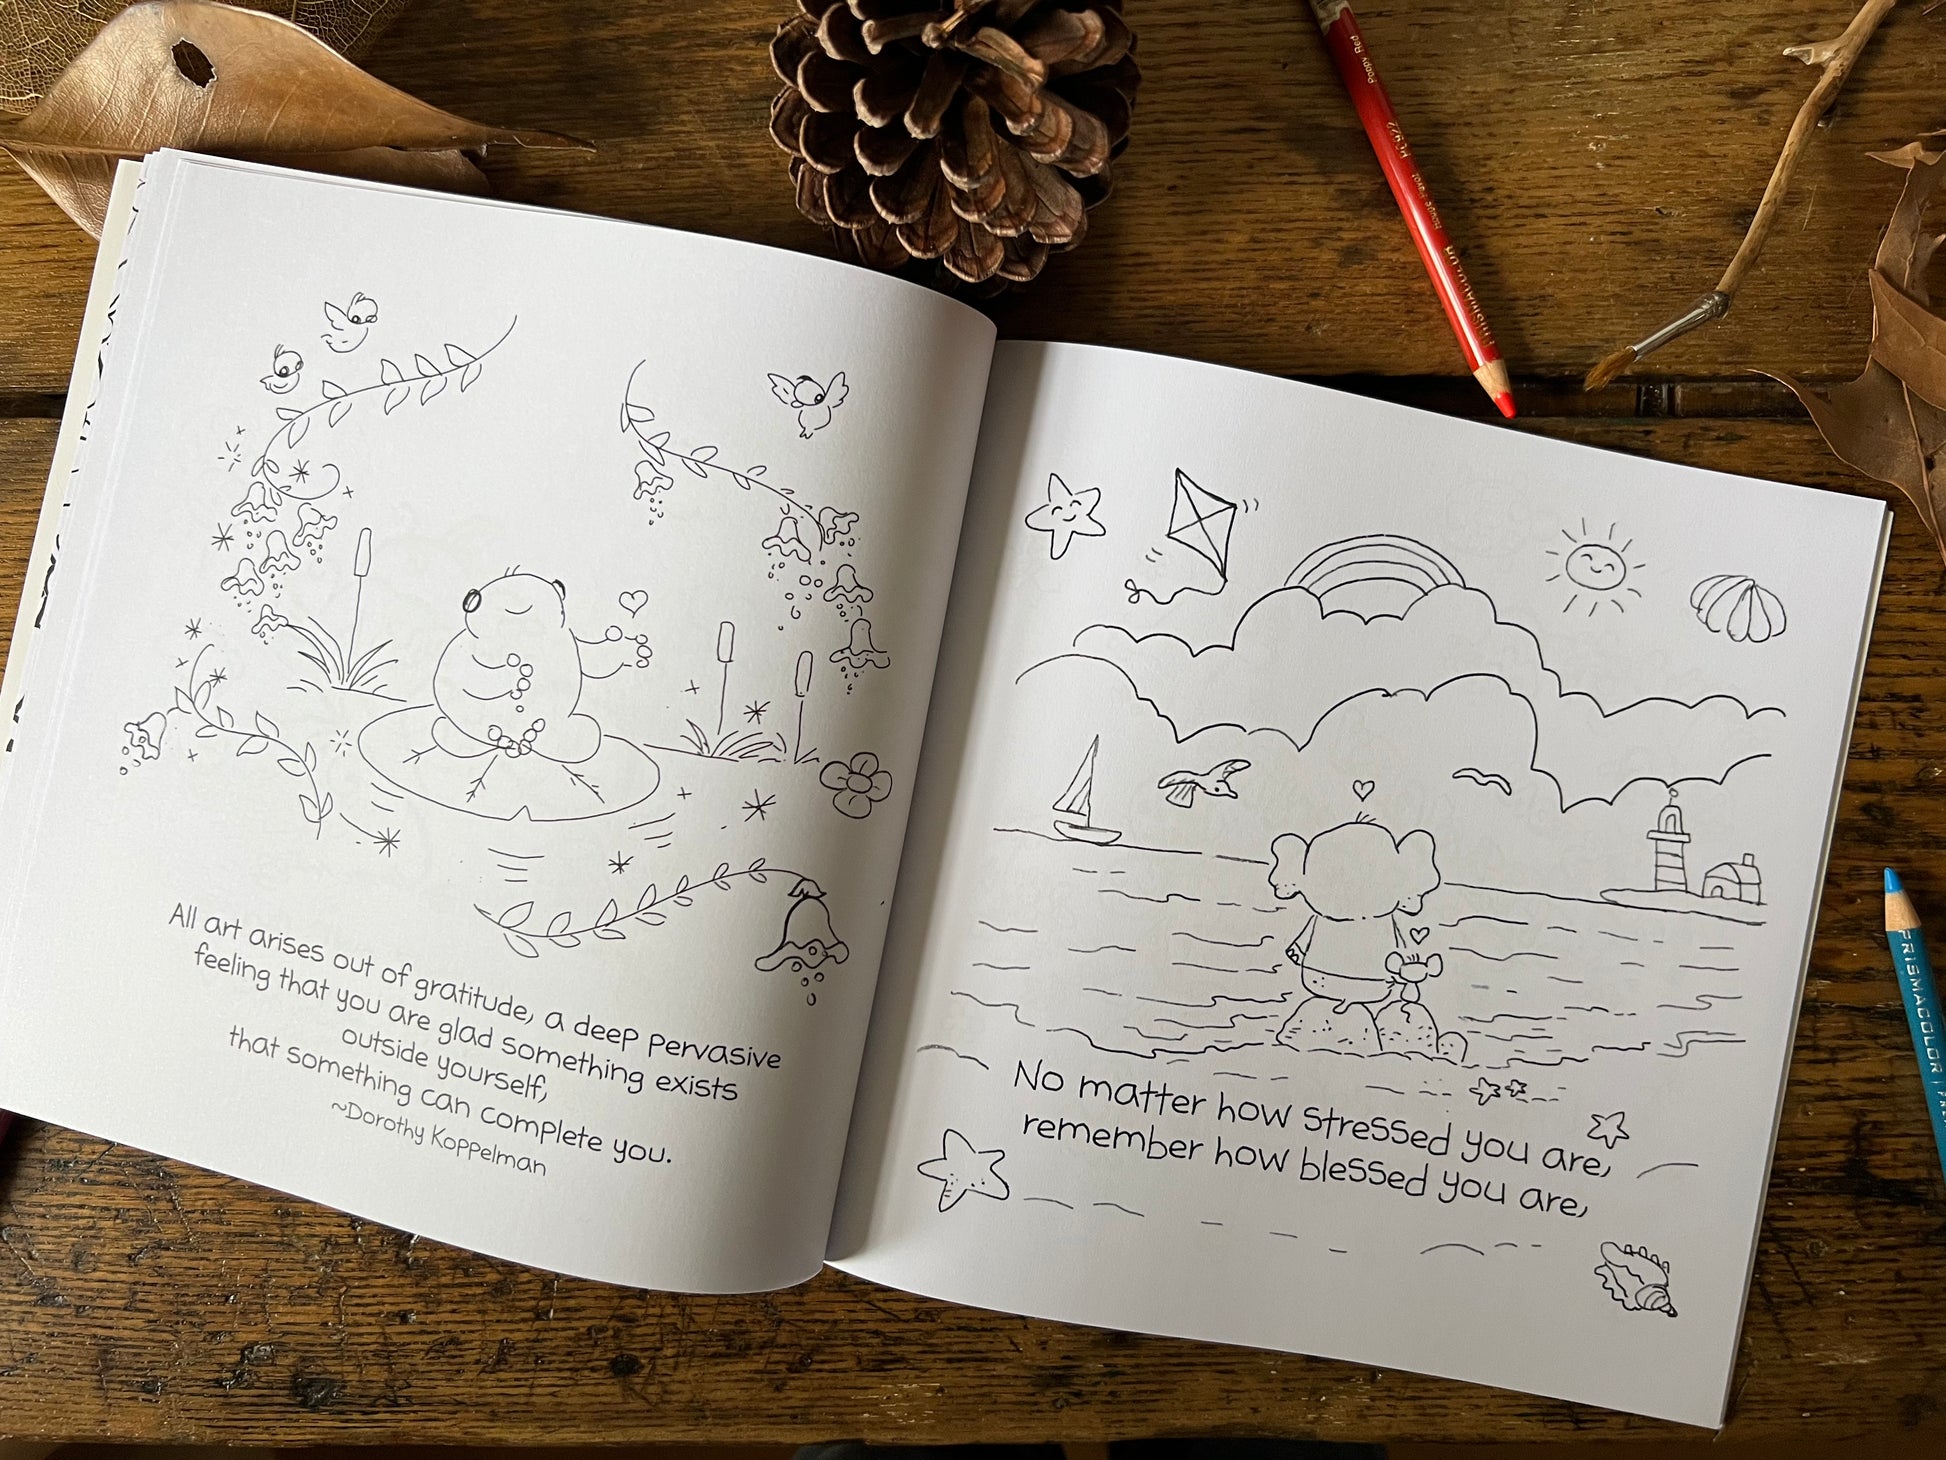 All art arises out of gratitude, a deep pervasive
feeling that you are glad something exists
outside yourself,
that something can complete you.
~Dorothy Koppelman
No matter how stressed you are,
remember how blessed you are,
PRISMACOLOR
Poppy Red
PC922
PRISMACOLOR